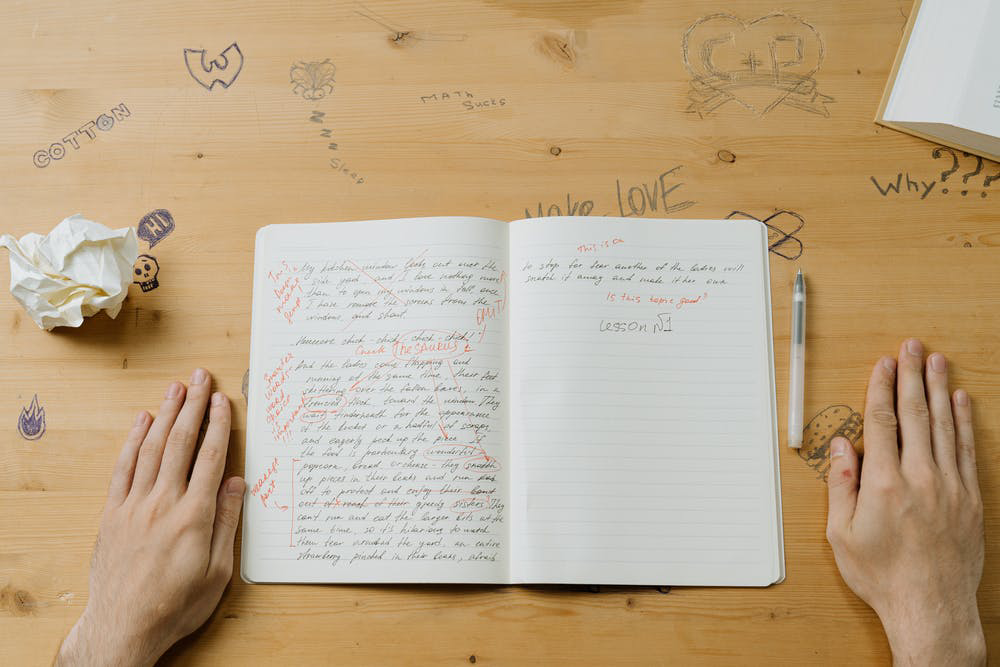 W
MATH
SUCKS
COTTON
NNN
Sleep
C+P
Why???
HI
Make LOVE
This is a
to stop for fear another of the ladies will
snatch it away and make it her own
Is this topic good?
Lesson №1
My kitchen window looks out over the
yard and I love nothing more
than to open my windows in fall once
I have remove the screens from the
windows, and shout.
OMIT!
chick-chick, chick-chick!
Check THESAURUS
And the ladies come flapping and
running at the same time, their feet
skittering over the fallen leaves, in a
frenzied flock toward the window. They
wait underneath for the appearance
of the bucket or a handful of scraps,
and eagerly peck up the piece. If
the food is particulary wonderful
popcorn, bread or cheese - they snatch
up pieces in their beaks and run
off to protect and enjoy their
out of reach of their greedy sisters. They
can't run and eat the larger bits at the
same time, so it's hilarious to watch
them tear around the yard, an entire
strawberry pinched in their beaks, afraid
shorter
words-
choice
important
!!!
part